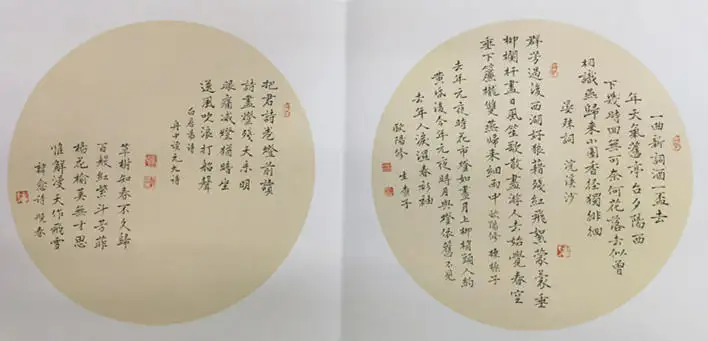 一曲新詞酒一盃去
年天氣舊亭台夕陽西
下幾時回無可奈何花落去似曾
相識燕歸來小園香徑獨徘徊
晏殊詞 浣溪沙
群芳過後西湖好狼藉殘紅飛絮蒙蒙垂
柳欄杆盡日風笙歌散盡游人去始覺春空
垂下簾櫳雙燕歸來細雨中 歐陽修 採桑子
去年元夜時花市燈如晝月上柳梢頭人約
黃昏後今年元夜時月與燈依舊不見
去年人淚濕春衫袖
歐陽修 生查子
把君詩卷燈前讀
詩盡燈殘天未明
眼痛滅燈猶暗坐
逆風吹浪打船聲
白居易詩
舟中讀元九詩
草樹知春不久歸
百般紅紫斗芳菲
楊花榆莢無才思
惟解漫天作飛雪
韓愈詩 晚春